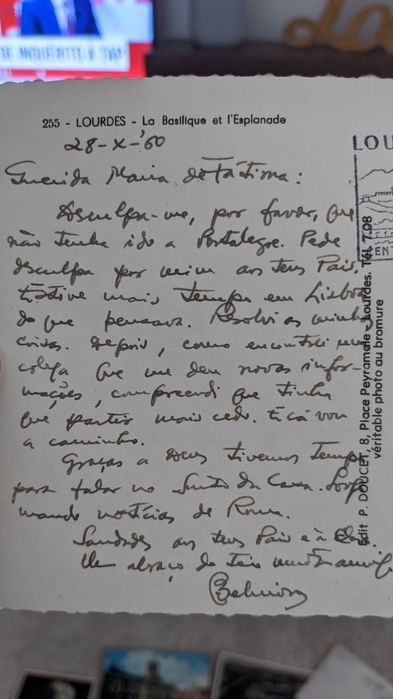 DE INQUÉRITO À TAP
255 - LOURDES - La Basilique et l'Esplanade
28-X-'60
LOU
Querida Maria de Fátima:
Desculpa-me, por favor, que
não tenha ido a Portalegre. Pede
desculpa por mim aos teus Pais.
Estive mais tempo em Lisboa
do que pensava. Resolvi as minhas
coisas. Depois, como encontrei um
colega que me deu novas infor-
mações, compreendi que tinha
que partir mais cedo. E cá vou
a caminho.
Graças a Deus tivemos tempo
para falar no
mando notícias de Roma.
Saudades aos teus Pais e à
Um abraço do teu muito amigo
Edit P. DOUCET, 8, Place Peyramale, Lourdes. Tél. 7.08
véritable photo au bromure